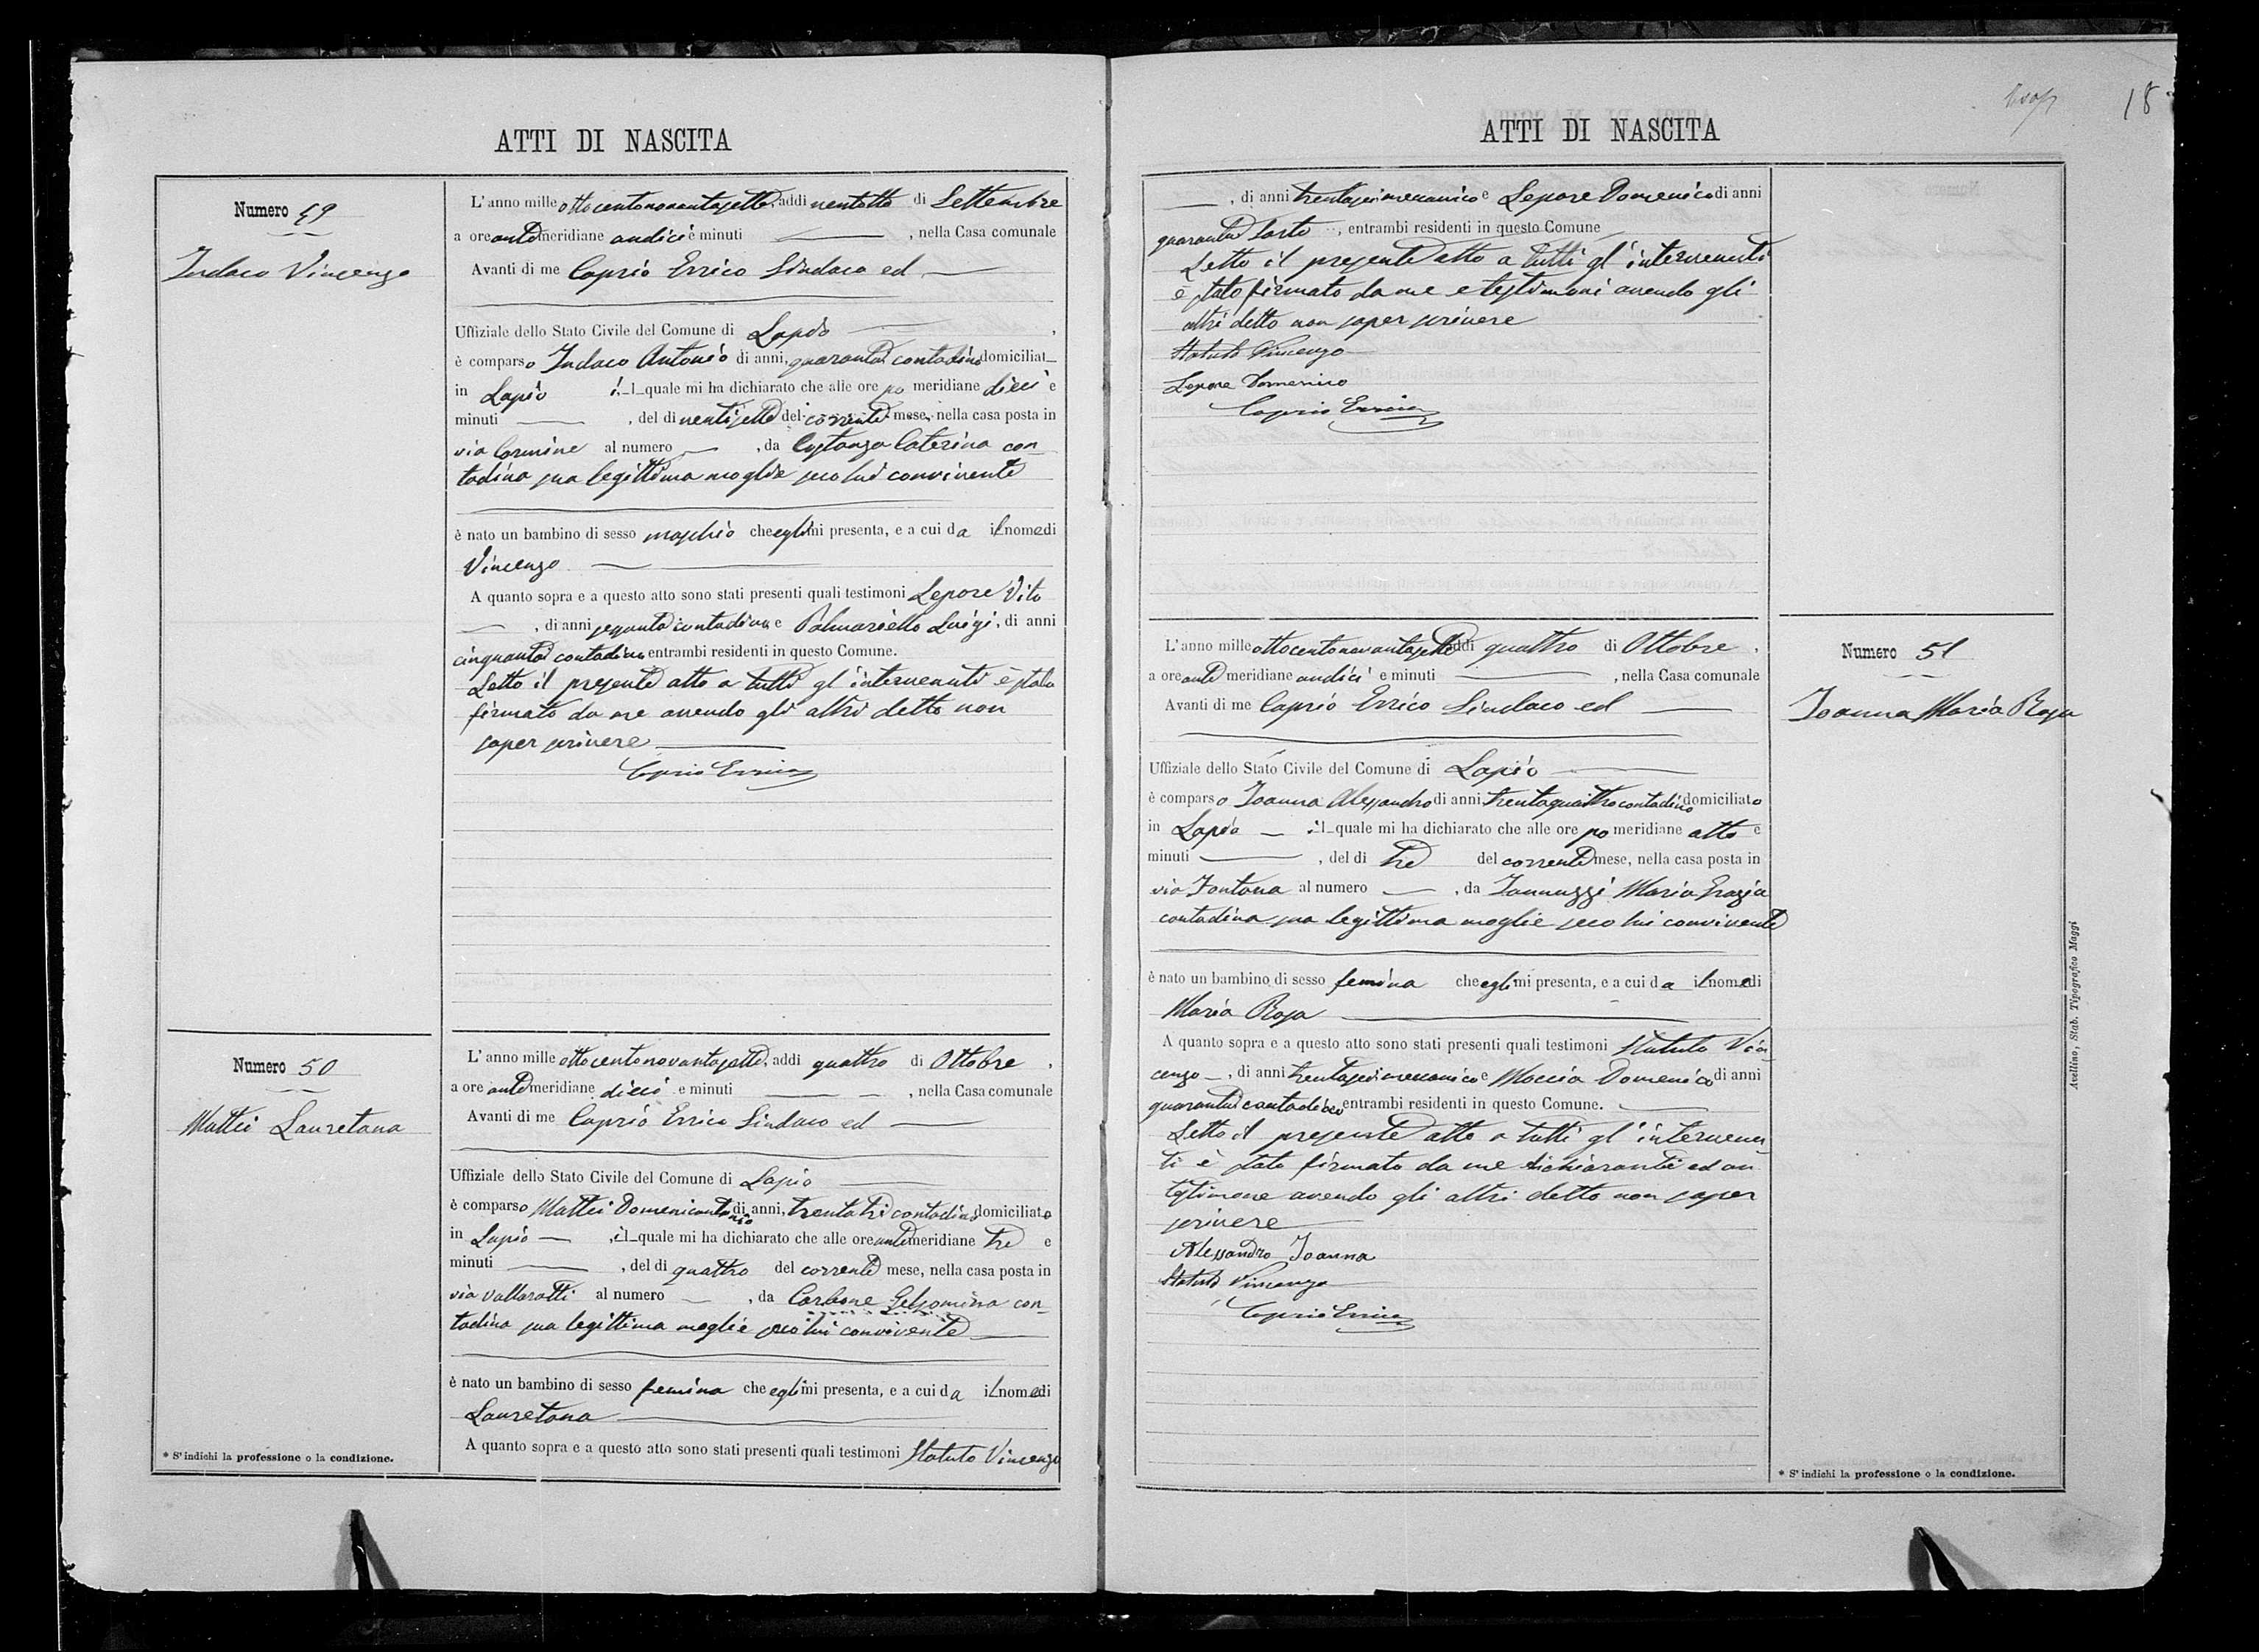 ATTI DI NASCITA
Numero 49
Indaco Vincenzo
L'anno mille ottocentonovantasette, addi ventotto di Settembre
a ore antemeridiane undici e minuti , nella Casa comunale
Avanti di me Caprio Errico Sindaco ed
Uffiziale dello Stato Civile del Comune di Lapio
è comparso Indaco Antonio di anni, quaranta contadino domiciliat
in Lapio il quale mi ha dichiarato che alle ore po meridiane dieci e
minuti , del di ventisette del corrente mese, nella casa posta in
via Carmine al numero , da Costanza Caterina con
tadina sua legittima moglie seco lui convivente
è nato un bambino di sesso maschio che egli mi presenta, e a cui da il nome di
Vincenzo
A quanto sopra e a questo atto sono stati presenti quali testimoni Lepore Vito
, di anni sessanta contadino e Palmariello Luigi, di anni
cinquanta contadino entrambi residenti in questo Comune.
Letto il presente atto a tutti gl'intervenuti è stato
firmato da me avendo gli altri detto non
saper scrivere
Caprio Errico
Numero 50
Mattei Lauretana
L'anno mille ottocentonovantasette, addi quattro di Ottobre,
a ore antemeridiane dieci e minuti , nella Casa comunale
Avanti di me Caprio Errico Sindaco ed
Uffiziale dello Stato Civile del Comune di Lapio
è comparso Mattei Domenicantonio di anni, trentatre contadino domiciliato
in Lapio , il quale mi ha dichiarato che alle ore antemeridiane tre e
minuti , del di quattro del corrente mese, nella casa posta in
via Vallaratti al numero , da Carbone Gelsomina con
tadina sua legittima moglie seco lui convivente
è nato un bambino di sesso femina che egli mi presenta, e a cui da il nome di
Lauretana
A quanto sopra e a questo atto sono stati presenti quali testimoni Statuto Vincenzo
* S'indichi la professione o la condizione.
18
ATTI DI NASCITA
, di anni trentasei meccanico e Lepore Domenico di anni
quaranta sarto , entrambi residenti in questo Comune
Letto il presente atto a tutti gl'intervenuti
è stato firmato da me e testimoni avendo gli
altri detto non saper scrivere
Statuto Vincenzo
Lepore Domenico
Caprio Errico
Numero 51
Ioanna Maria Rosa
L'anno mille ottocentonovantasette addi quattro di Ottobre,
a ore ante meridiane undici e minuti , nella Casa comunale
Avanti di me Caprio Errico Sindaco ed
Uffiziale dello Stato Civile del Comune di Lapio
è comparso Ioanna Alessandro di anni, trentaquattro contadino domiciliato
in Lapio il quale mi ha dichiarato che alle ore po meridiane otto e
minuti , del di tre del corrente mese, nella casa posta in
via Fontana al numero , da Iannuzzi Maria Grazia
contadina sua legittima moglie seco lui convivente
è nato un bambino di sesso femina che egli mi presenta, e a cui da il nome di
Maria Rosa
A quanto sopra e a questo atto sono stati presenti quali testimoni Statuto Vin
cenzo , di anni trentasei meccanico e Moccia Domenico di anni
quaranta contadino entrambi residenti in questo Comune.
Letto il presente atto a tutti gl'intervenu
ti è stato firmato da me dichiarante ed un
testimone avendo gli altri detto non saper
scrivere
Alessandro Ioanna
Statuto Vincenzo
Caprio Errico
* S'indichi la professione o la condizione.
Avellino, Stab. Tipografico Maggi